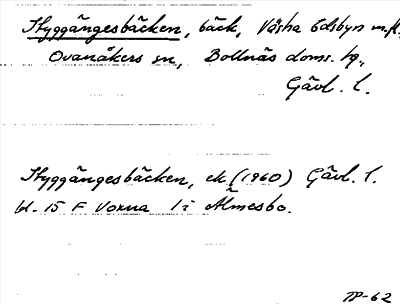 Styggängesbäcken, bäck, Västra Edsbyn m.fl.,
Ovanåkers sn, Bollnäs doms. hg.,
Gävl. l.
Styggängesbäcken, ek (1960) Gävl. l.
bl. 15 F Voxna 1 i Älmesbo.
TP-62